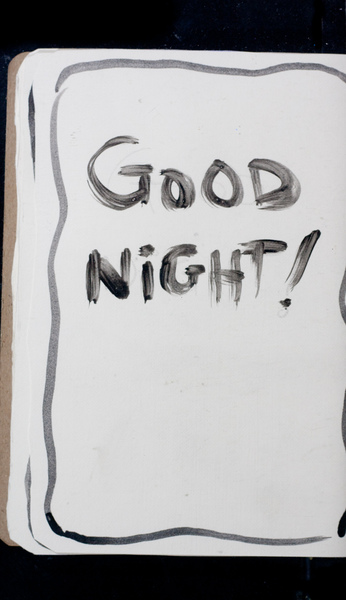 GOOD
NiGHT!